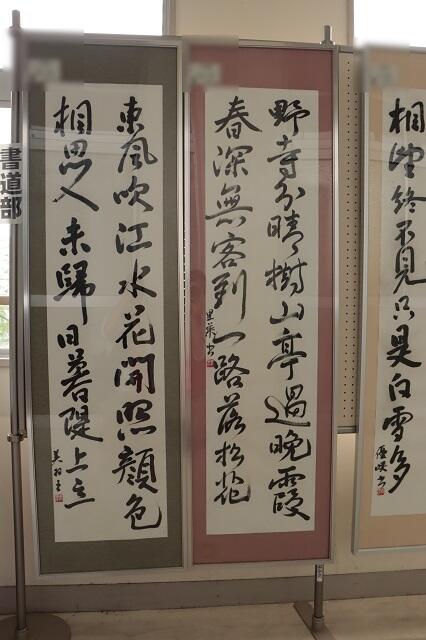 相望終不見只是白雪多
優咲書
野寺分晴樹山亭過晩霞
春深無客到一路落松花
東風吹江水花開照顔色
相思人未歸日暮隄上立
書道部